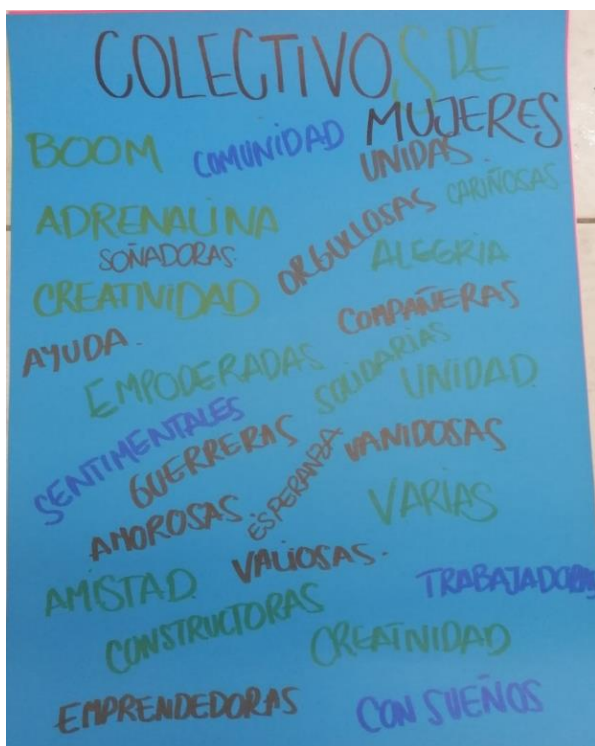 COLECTIVOS DE
MUJERES
BOOM
COMUNIDAD
UNIDAS
CARIÑOSAS
ADRENALINA
ORGULLOSAS
SOÑADORAS.
ALEGRIA
CREATIVIDAD
COMPAÑERAS
AYUDA.
EMPODERADAS
SOLIDARIAS
UNIDAD
SENTIMENTALES
GUERRERAS
ESPERANZA
VANIDOSAS
AMOROSAS
VARIAS
VALIOSAS.
AMISTAD
TRABAJADORAS
CONSTRUCTORAS
CREATIVIDAD
EMPRENDEDORAS
CON SUEÑOS